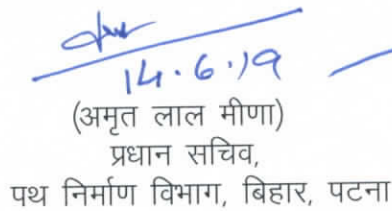 14.6.19
(अमृत लाल मीणा)
प्रधान सचिव,
पथ निर्माण विभाग, बिहार, पटना